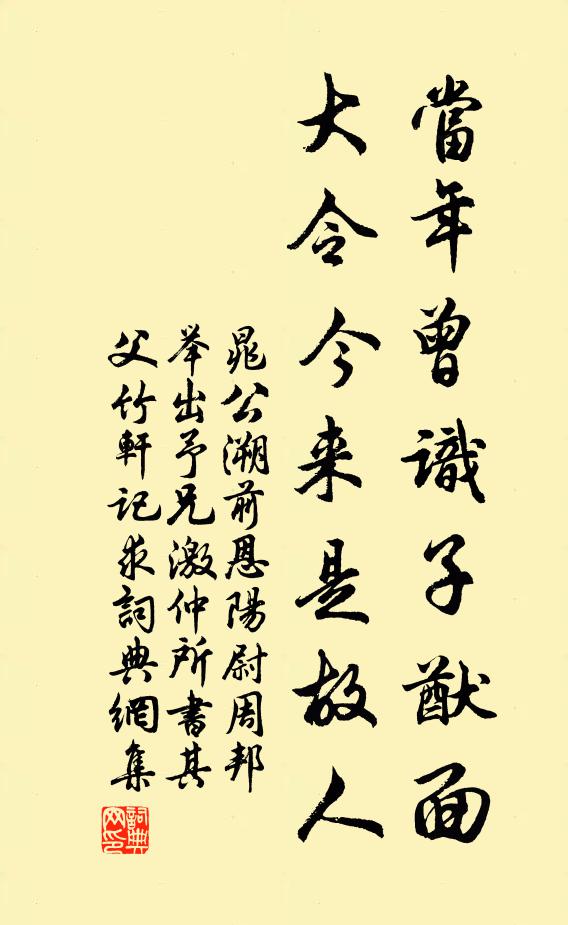 當年曾識子猷面
大令今来是故人
晁公溯前恩陽尉周邦
举出予兄激仲所書其
父竹軒記求詞典網集
詞典
网印